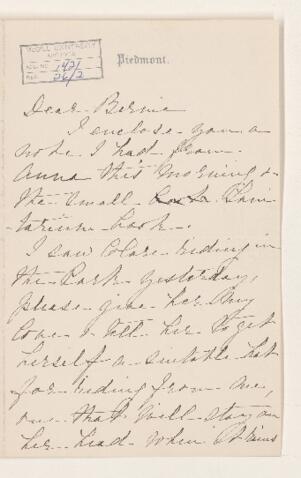 McGILL UNIVERSITY
ARCHIVES
ACC. NO. 1421
REF. 26/2
Piedmont.
Dear Bernie
I enclose you a
note I had from
Anna this morning &
the small
book.
I saw Clare riding in
the Park yesterday,
please give her my
love & tell her to get
herself a suitable hat
for riding from me,
one that will stay on
her head when it runs